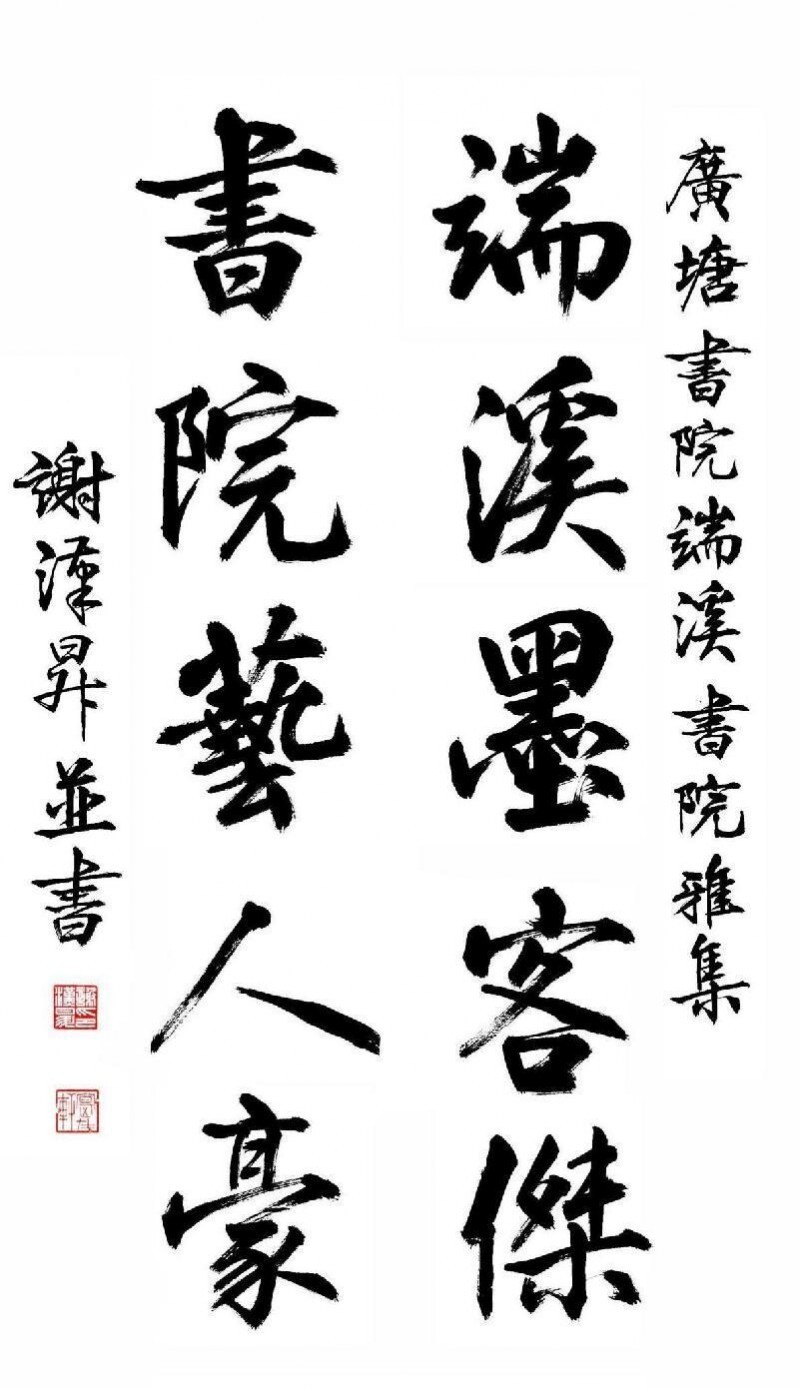 廣塘書院端溪書院雅集
端溪墨客傑
書院藝人豪
謝漢昇並書